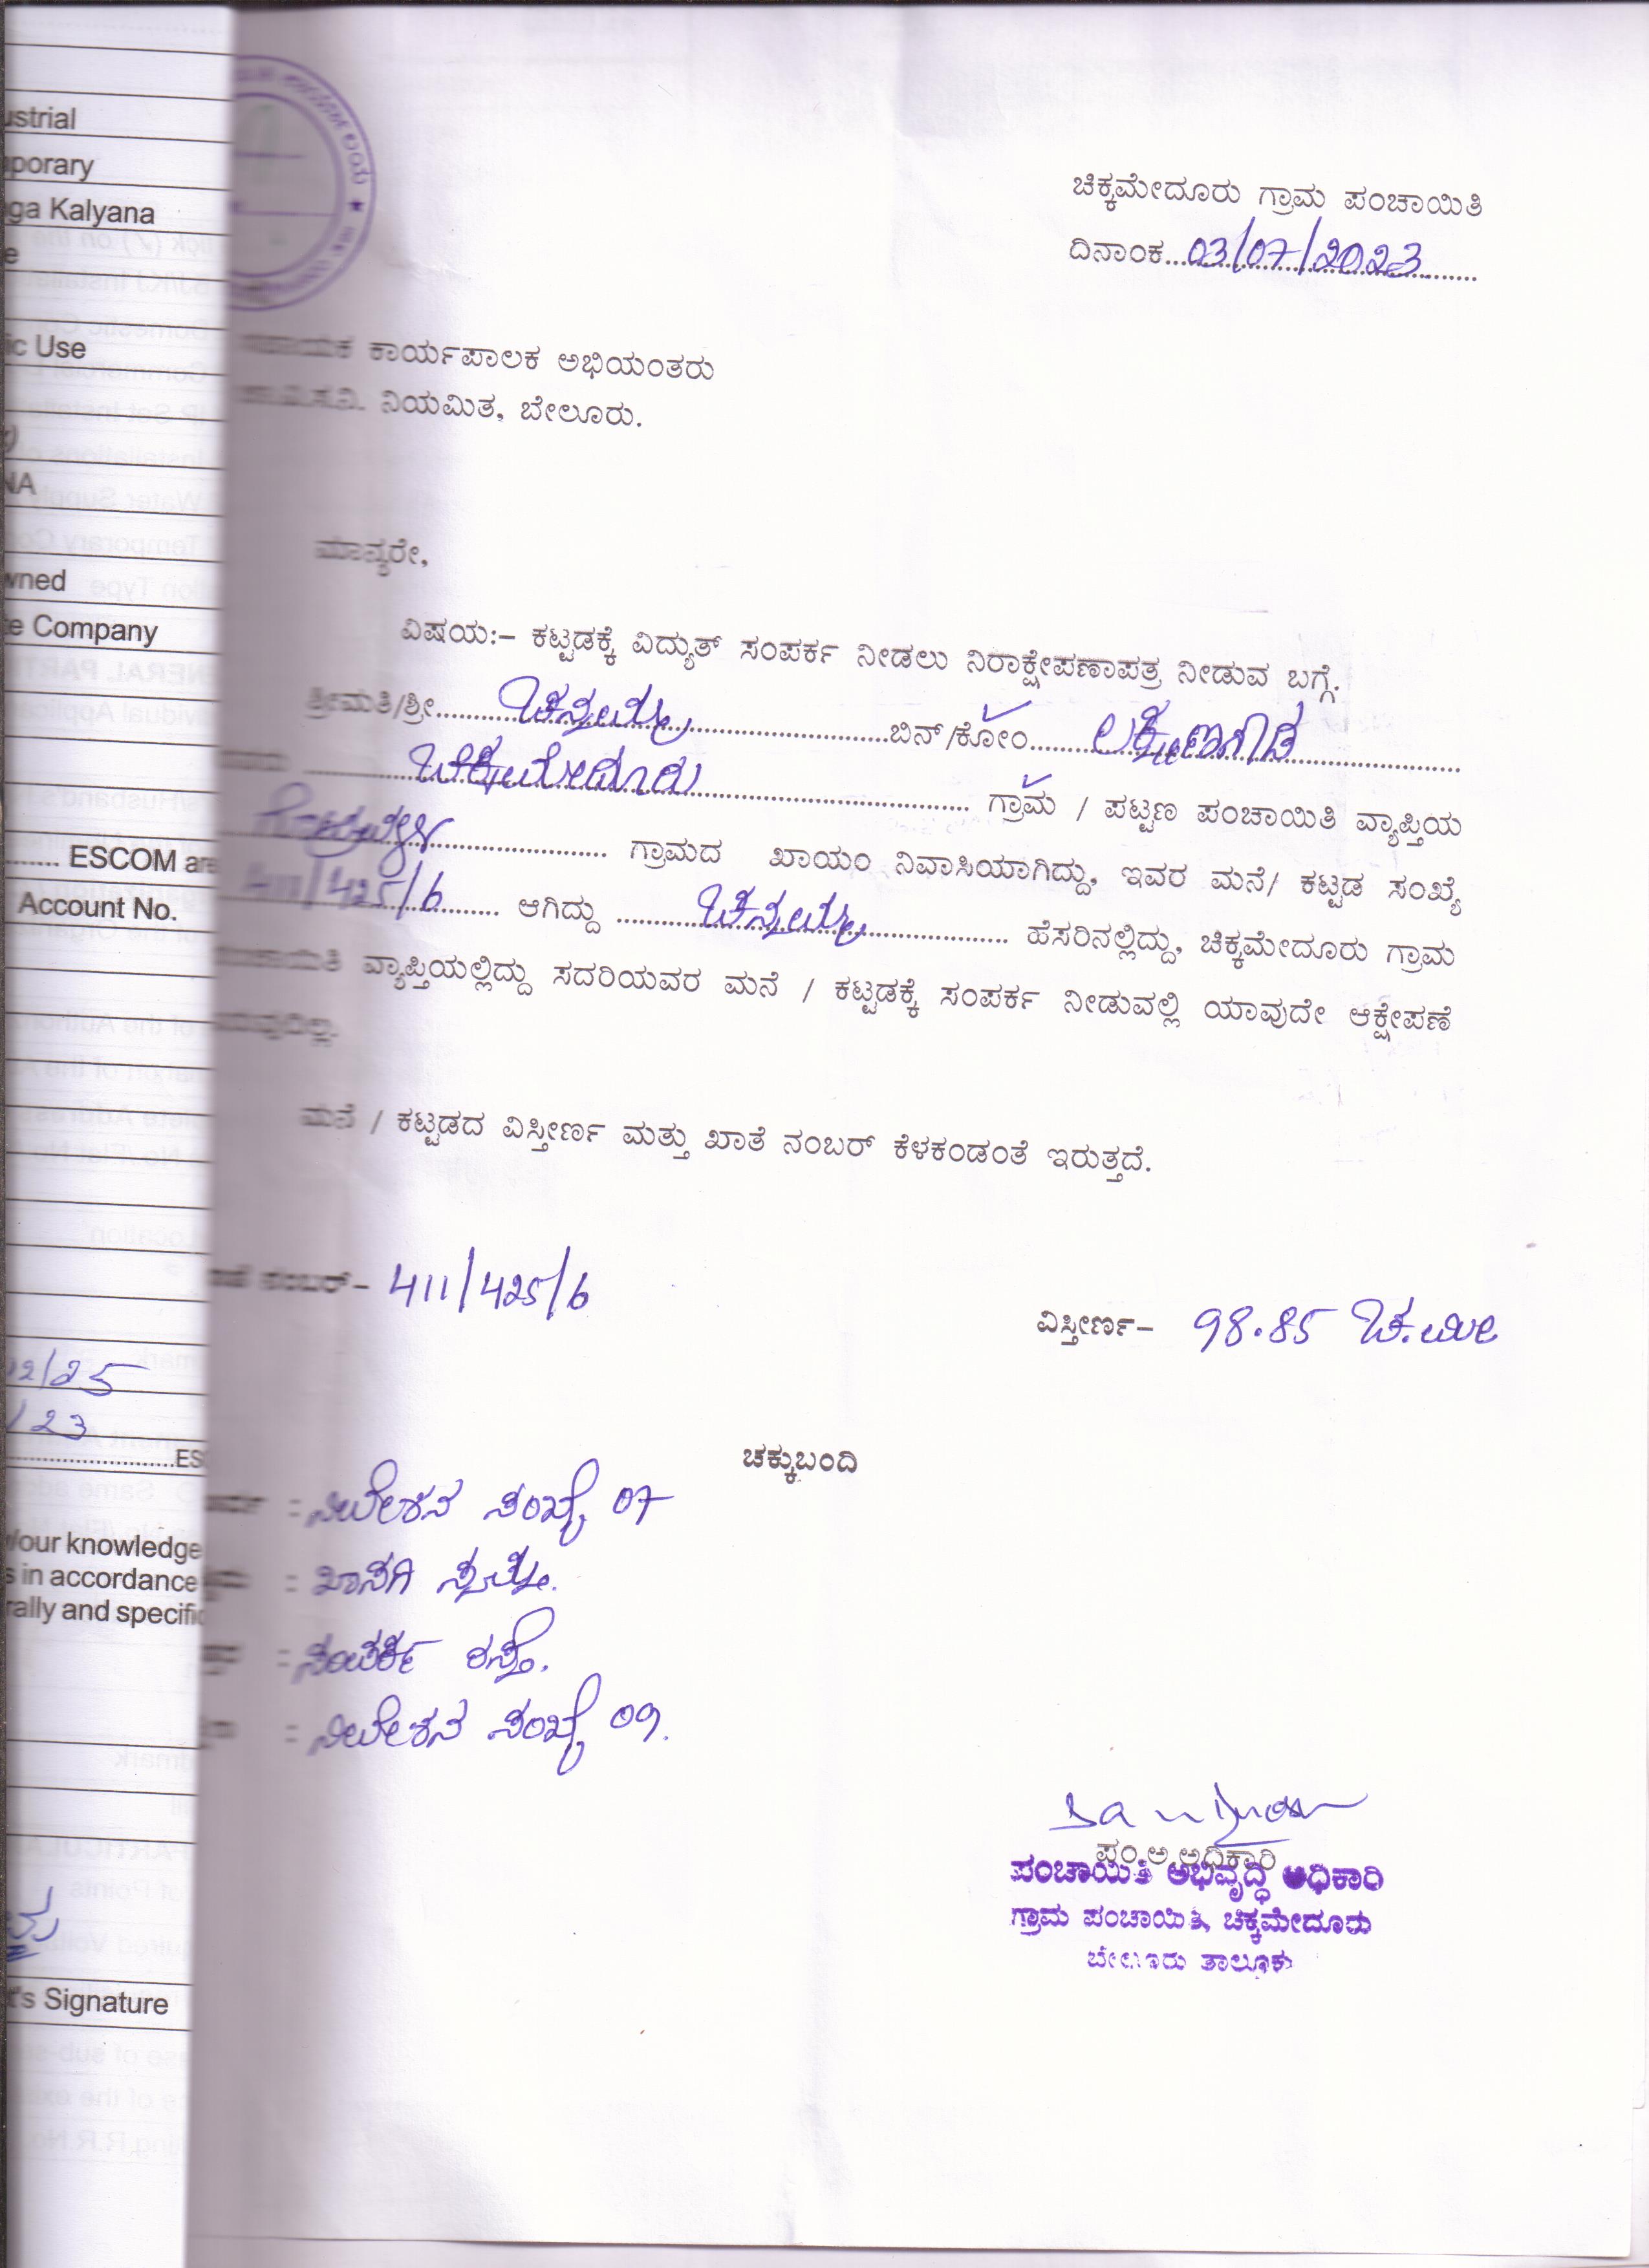 ustrial
porary
ga Kalyana
e
c Use
NA
wned
e Company
........ ESCOM are
Account No.
12/25
/23
........................ES
/our knowledge
s in accordance
rally and specific
t's Signature
ಚಿಕ್ಕಮೇದೂರು ಗ್ರಾಮ ಪಂಚಾಯಿತಿ
ದಿನಾಂಕ...03/07/2023......
ಕಾರ್ಯಪಾಲಕ ಅಭಿಯಂತರು
ನಿಯಮಿತ, ಬೇಲೂರು.
ಮಾನ್ಯರೇ,
ವಿಷಯ:– ಕಟ್ಟಡಕ್ಕೆ ವಿದ್ಯುತ್ ಸಂಪರ್ಕ ನೀಡಲು ನಿರಾಕ್ಷೇಪಣಾಪತ್ರ ನೀಡುವ ಬಗ್ಗೆ.
ಶ್ರೀಮತಿ/ಶ್ರೀ..........ಚನ್ನಮ್ಮ..........ಬಿನ್/ಕೋಂ..........ಲಕ್ಷ್ಮಣಗೌಡ..........
..........ಚಿಕ್ಕಮೇದೂರು.......... ಗ್ರಾಮ / ಪಟ್ಟಣ ಪಂಚಾಯಿತಿ ವ್ಯಾಪ್ತಿಯ
.......... ಗ್ರಾಮದ ಖಾಯಂ ನಿವಾಸಿಯಾಗಿದ್ದು, ಇವರ ಮನೆ/ ಕಟ್ಟಡ ಸಂಖ್ಯೆ
411/425/6.......... ಆಗಿದ್ದು ..........ಚನ್ನಮ್ಮ.......... ಹೆಸರಿನಲ್ಲಿದ್ದು, ಚಿಕ್ಕಮೇದೂರು ಗ್ರಾಮ
ಪಂಚಾಯಿತಿ ವ್ಯಾಪ್ತಿಯಲ್ಲಿದ್ದು ಸದರಿಯವರ ಮನೆ / ಕಟ್ಟಡಕ್ಕೆ ಸಂಪರ್ಕ ನೀಡುವಲ್ಲಿ ಯಾವುದೇ ಆಕ್ಷೇಪಣೆ
ಇರುವುದಿಲ್ಲ.
ಮನೆ / ಕಟ್ಟಡದ ವಿಸ್ತೀರ್ಣ ಮತ್ತು ಖಾತೆ ನಂಬರ್ ಕೆಳಕಂಡಂತೆ ಇರುತ್ತದೆ.
ನಂಬರ್– 411/425/6
ವಿಸ್ತೀರ್ಣ– 98.85 ಚ.ಮೀ
ಚಕ್ಕುಬಂದಿ
: ನಿವೇಶನ ಸಂಖ್ಯೆ 07
: ಖಾಸಗಿ ಸ್ವತ್ತು.
: ಸಂಪರ್ಕ ರಸ್ತೆ.
: ನಿವೇಶನ ಸಂಖ್ಯೆ 09.
ಪಂ.ಅ.ಅಧಿಕಾರಿ
ಪಂಚಾಯಿತಿ ಅಭಿವೃದ್ಧಿ ಅಧಿಕಾರಿ
ಗ್ರಾಮ ಪಂಚಾಯಿತಿ, ಚಿಕ್ಕಮೇದೂರು
ಬೇಲೂರು ತಾಲ್ಲೂಕು